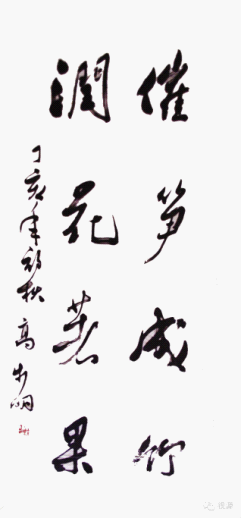 催笋成竹
润花著果
丁亥年初秋 高步明